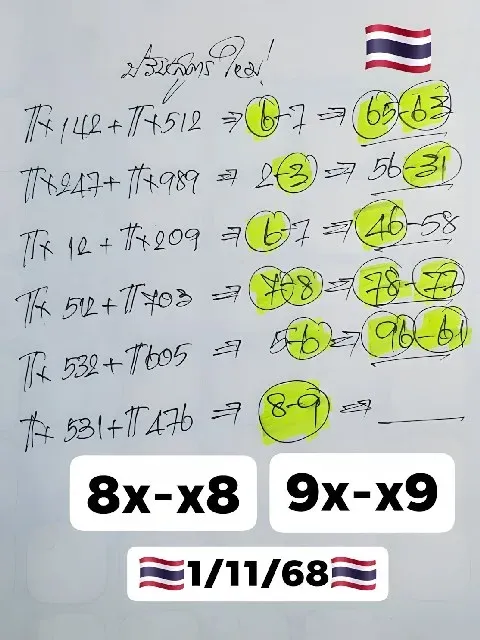 ปรับสูตรใหม่!
π×142+π×512 ⇒ 6-7 ⇒ 65-63
π×247+π×989 ⇒ 2-3 ⇒ 56-31
π×12+π×209 ⇒ 6-7 ⇒ 46-58
π×512+π703 ⇒ 7-8 ⇒ 78-77
π×532+π605 ⇒ 5-6 ⇒ 96-61
π×531+π476 ⇒ 8-9 ⇒ ____
8x-x8 9x-x9
1/11/68